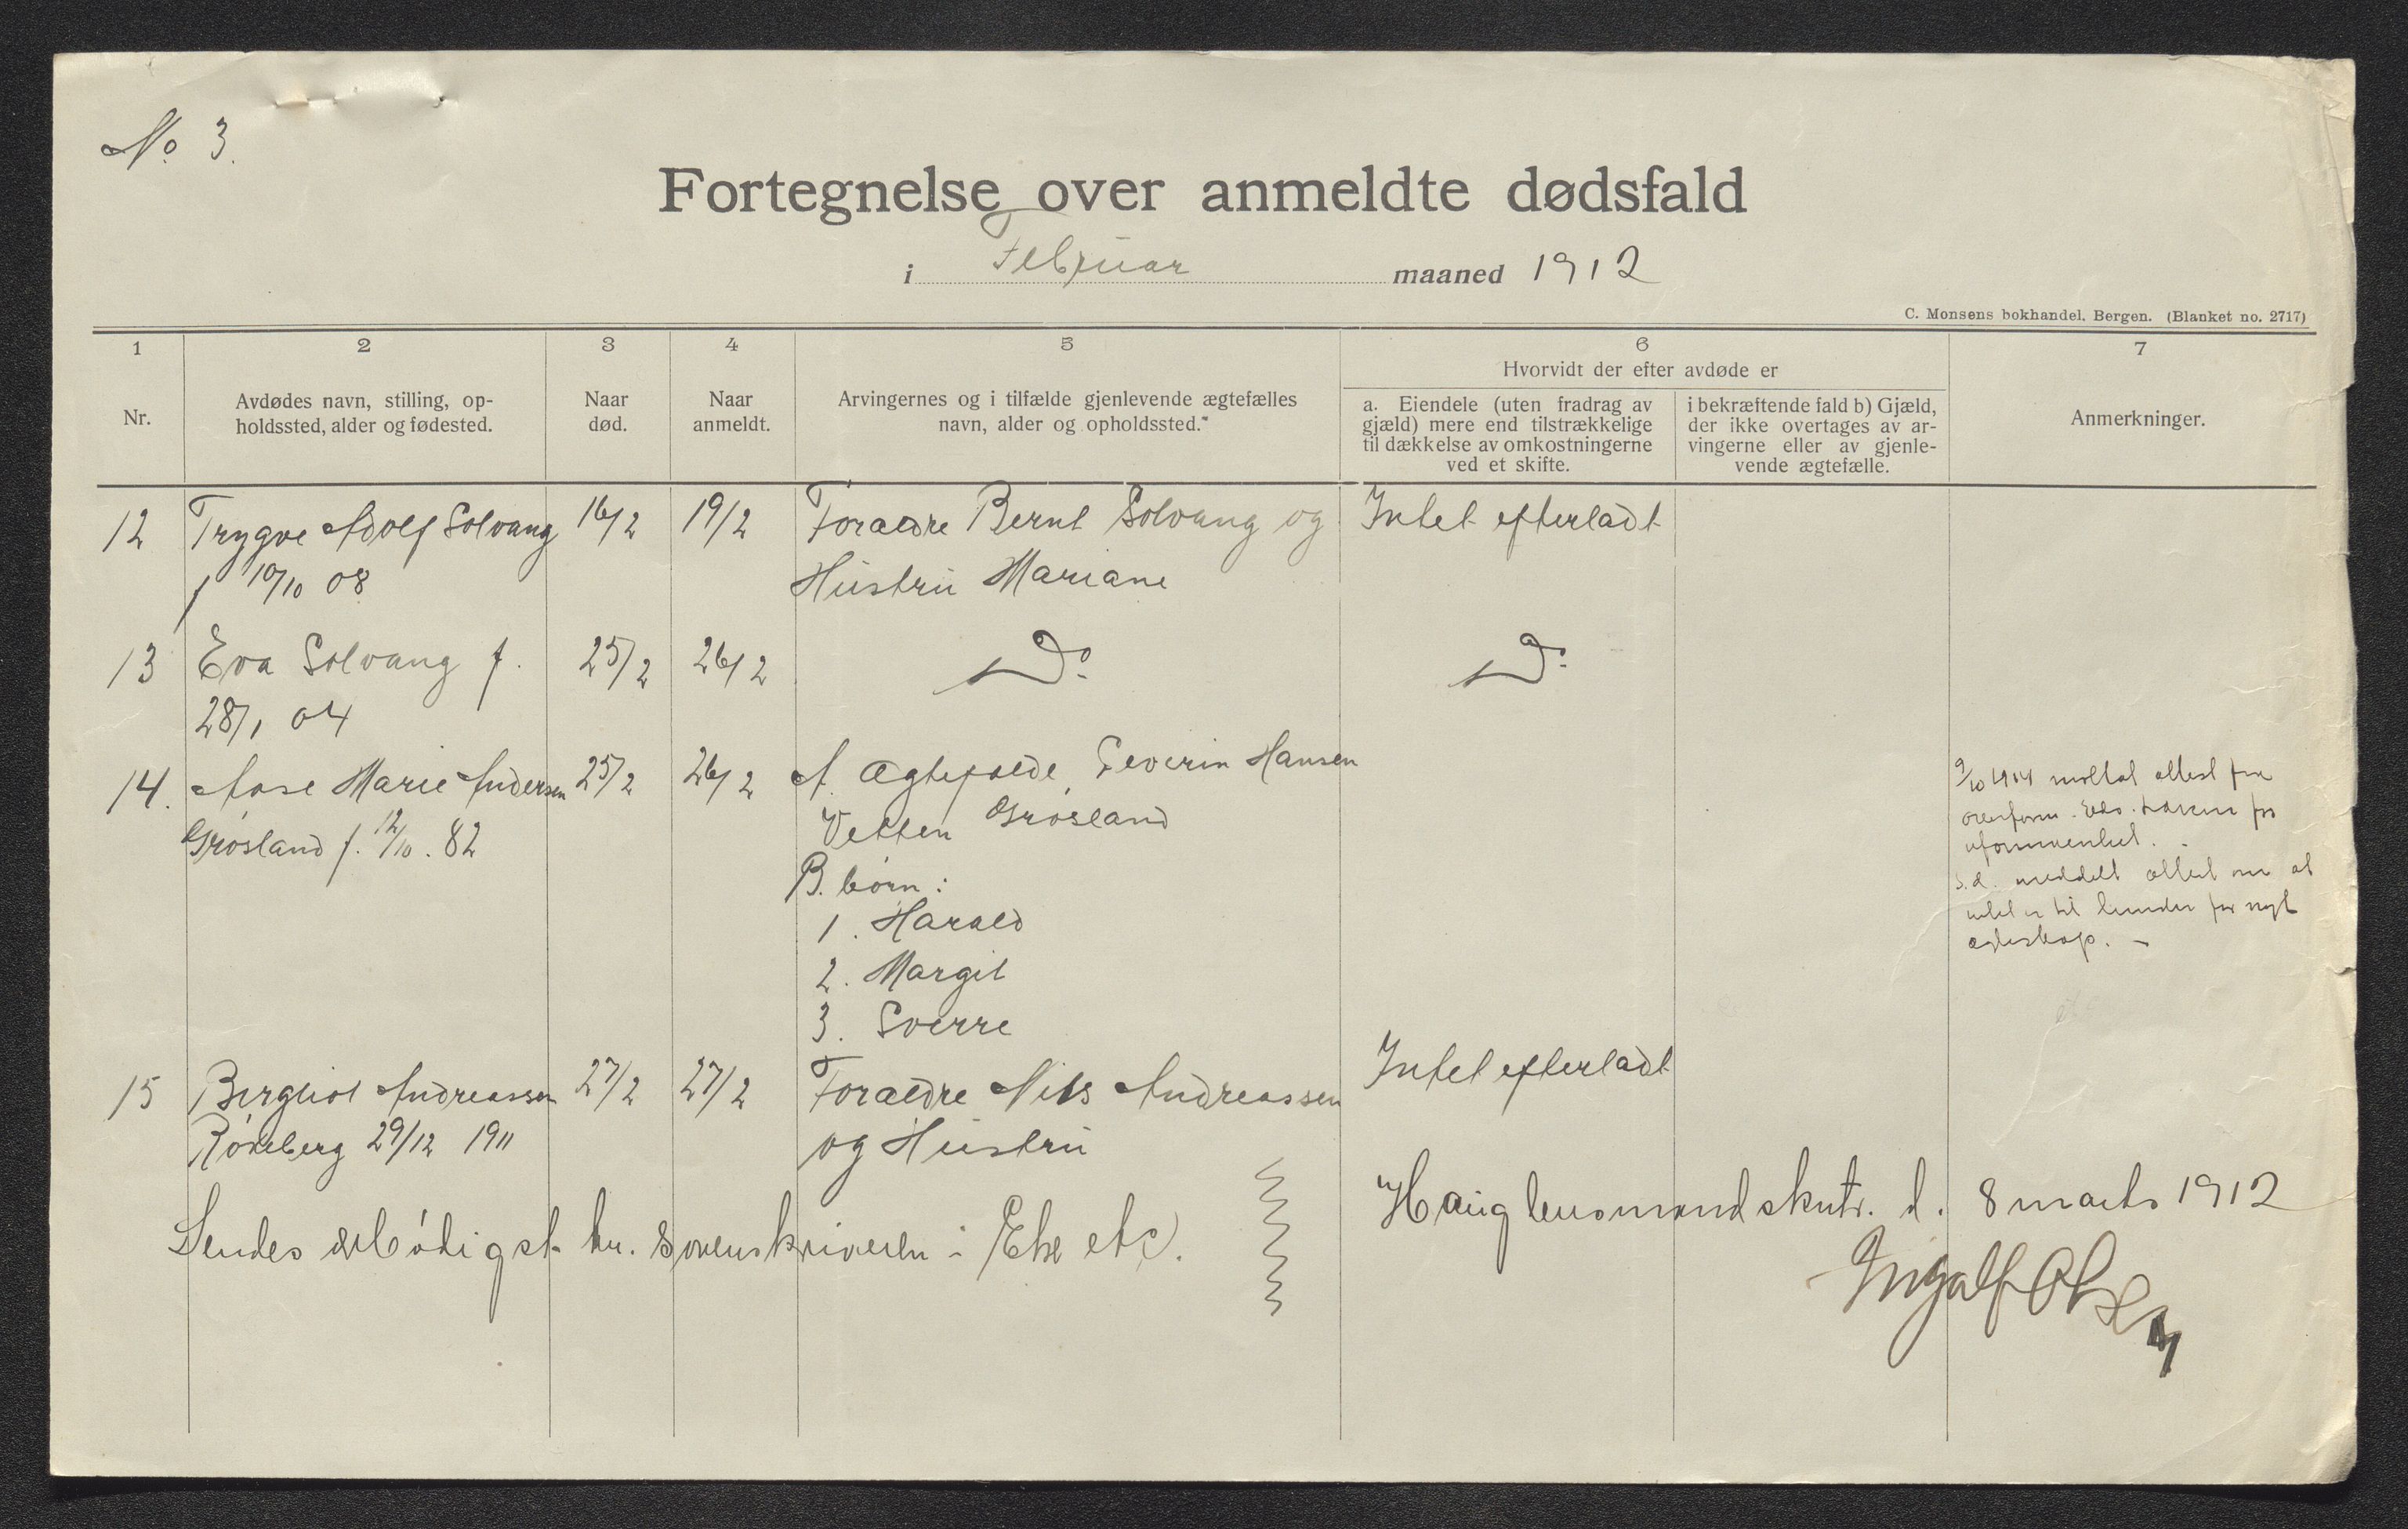 No 3.
Fortegnelse over anmeldte dødsfald
i Februar maaned 1912
C. Monsens bokhandel, Bergen. (Blanket no. 2717)
1 2 3 4 5 6 7
Nr.
Avdødes navn, stilling, op-
holdssted, alder og fødested.
Naar
død.
Naar
anmeldt.
Arvingernes og i tilfælde gjenlevende ægtefælles
navn, alder og opholdssted.*
Hvorvidt der efter avdøde er
a. Eiendele (uten fradrag av
gjæld) mere end tilstrækkelige
til dækkelse av omkostningerne
ved et skifte.
i bekræftende fald b) Gjæld,
der ikke overtages av ar-
vingerne eller av gjenle-
vende ægtefælle.
Anmerkninger.
12 Trygve Adolf Solvang 16/2 19/2 Foraldre Bernt Solvang og Intet efterladt
f 10/10 08 Hustru Mariane
13 Eva Solvang f. 25/2 26/2 Do. Do.
28/1 04
14. Aase Marie Andersen 25/2 26/2 A. Ægtefælde Severin Hansen
Grøsland f. 12/10. 82 Vetten Grøsland
B. børn:
1. Harald
2. Margit
3. Sverre
9/10 1914 mottat attest fra
overform. Eker
s.d. meddelt attest om at
intet er til hinder for nyt
egteskap. –
15 Bergliot Andreassen 27/2 27/2 Foraldre Nils Andreassen Intet efterladt
29/12 1911 og Hustru
Haug lensmandskntr. d. 8 marts 1912
Sendes ærbødigst hr. sorenskriveren i Eker etc.
Ingolf Olsen